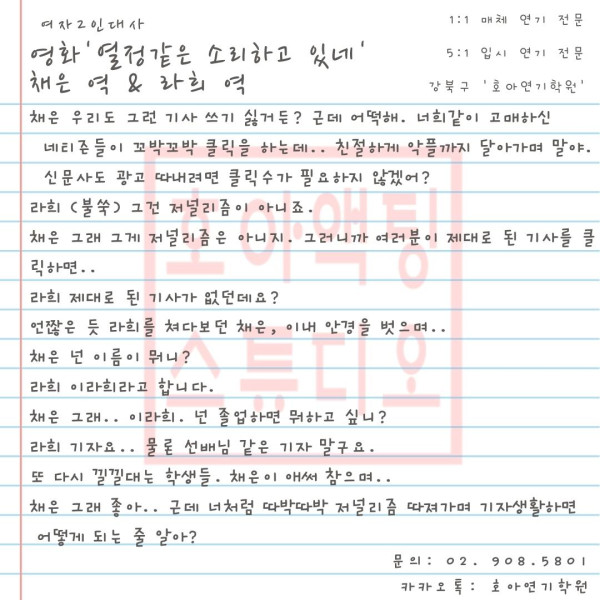 여자2인대사
1:1 매체 연기 전문
영화'열정같은 소리하고 있네'
5:1 입시 연기 전문
채은 역 & 라희 역
강북구 '호아연기학원'
채은 우리도 그런 기사 쓰기 싫거든? 근데 어떡해. 너희같이 고매하신
네티즌들이 꼬박꼬박 클릭을 하는데.. 친절하게 악플까지 달아가며 말야.
신문사도 광고 따내려면 클릭수가 필요하지 않겠어?
라희 (불쑥) 그건 저널리즘이 아니죠.
채은 그래 그게 저널리즘은 아니지. 그러니까 여러분이 제대로 된 기사를 클
릭하면..
라희 제대로 된 기사가 없던데요?
언짢은 듯 라희를 쳐다보던 채은, 이내 안경을 벗으며..
채은 넌 이름이 뭐니?
라희 이라희라고 합니다.
채은 그래.. 이라희. 넌 졸업하면 뭐하고 싶니?
라희 기자요.. 물론 선배님 같은 기자 말구요.
또 다시 낄낄대는 학생들. 채은이 애써 참으며..
채은 그래 좋아.. 근데 너처럼 따박따박 저널리즘 따져가며 기자생활하면
어떻게 되는 줄 알아?
문의: 02. 908.5801
카카오톡: 호아연기학원
호아액팅
스튜디오